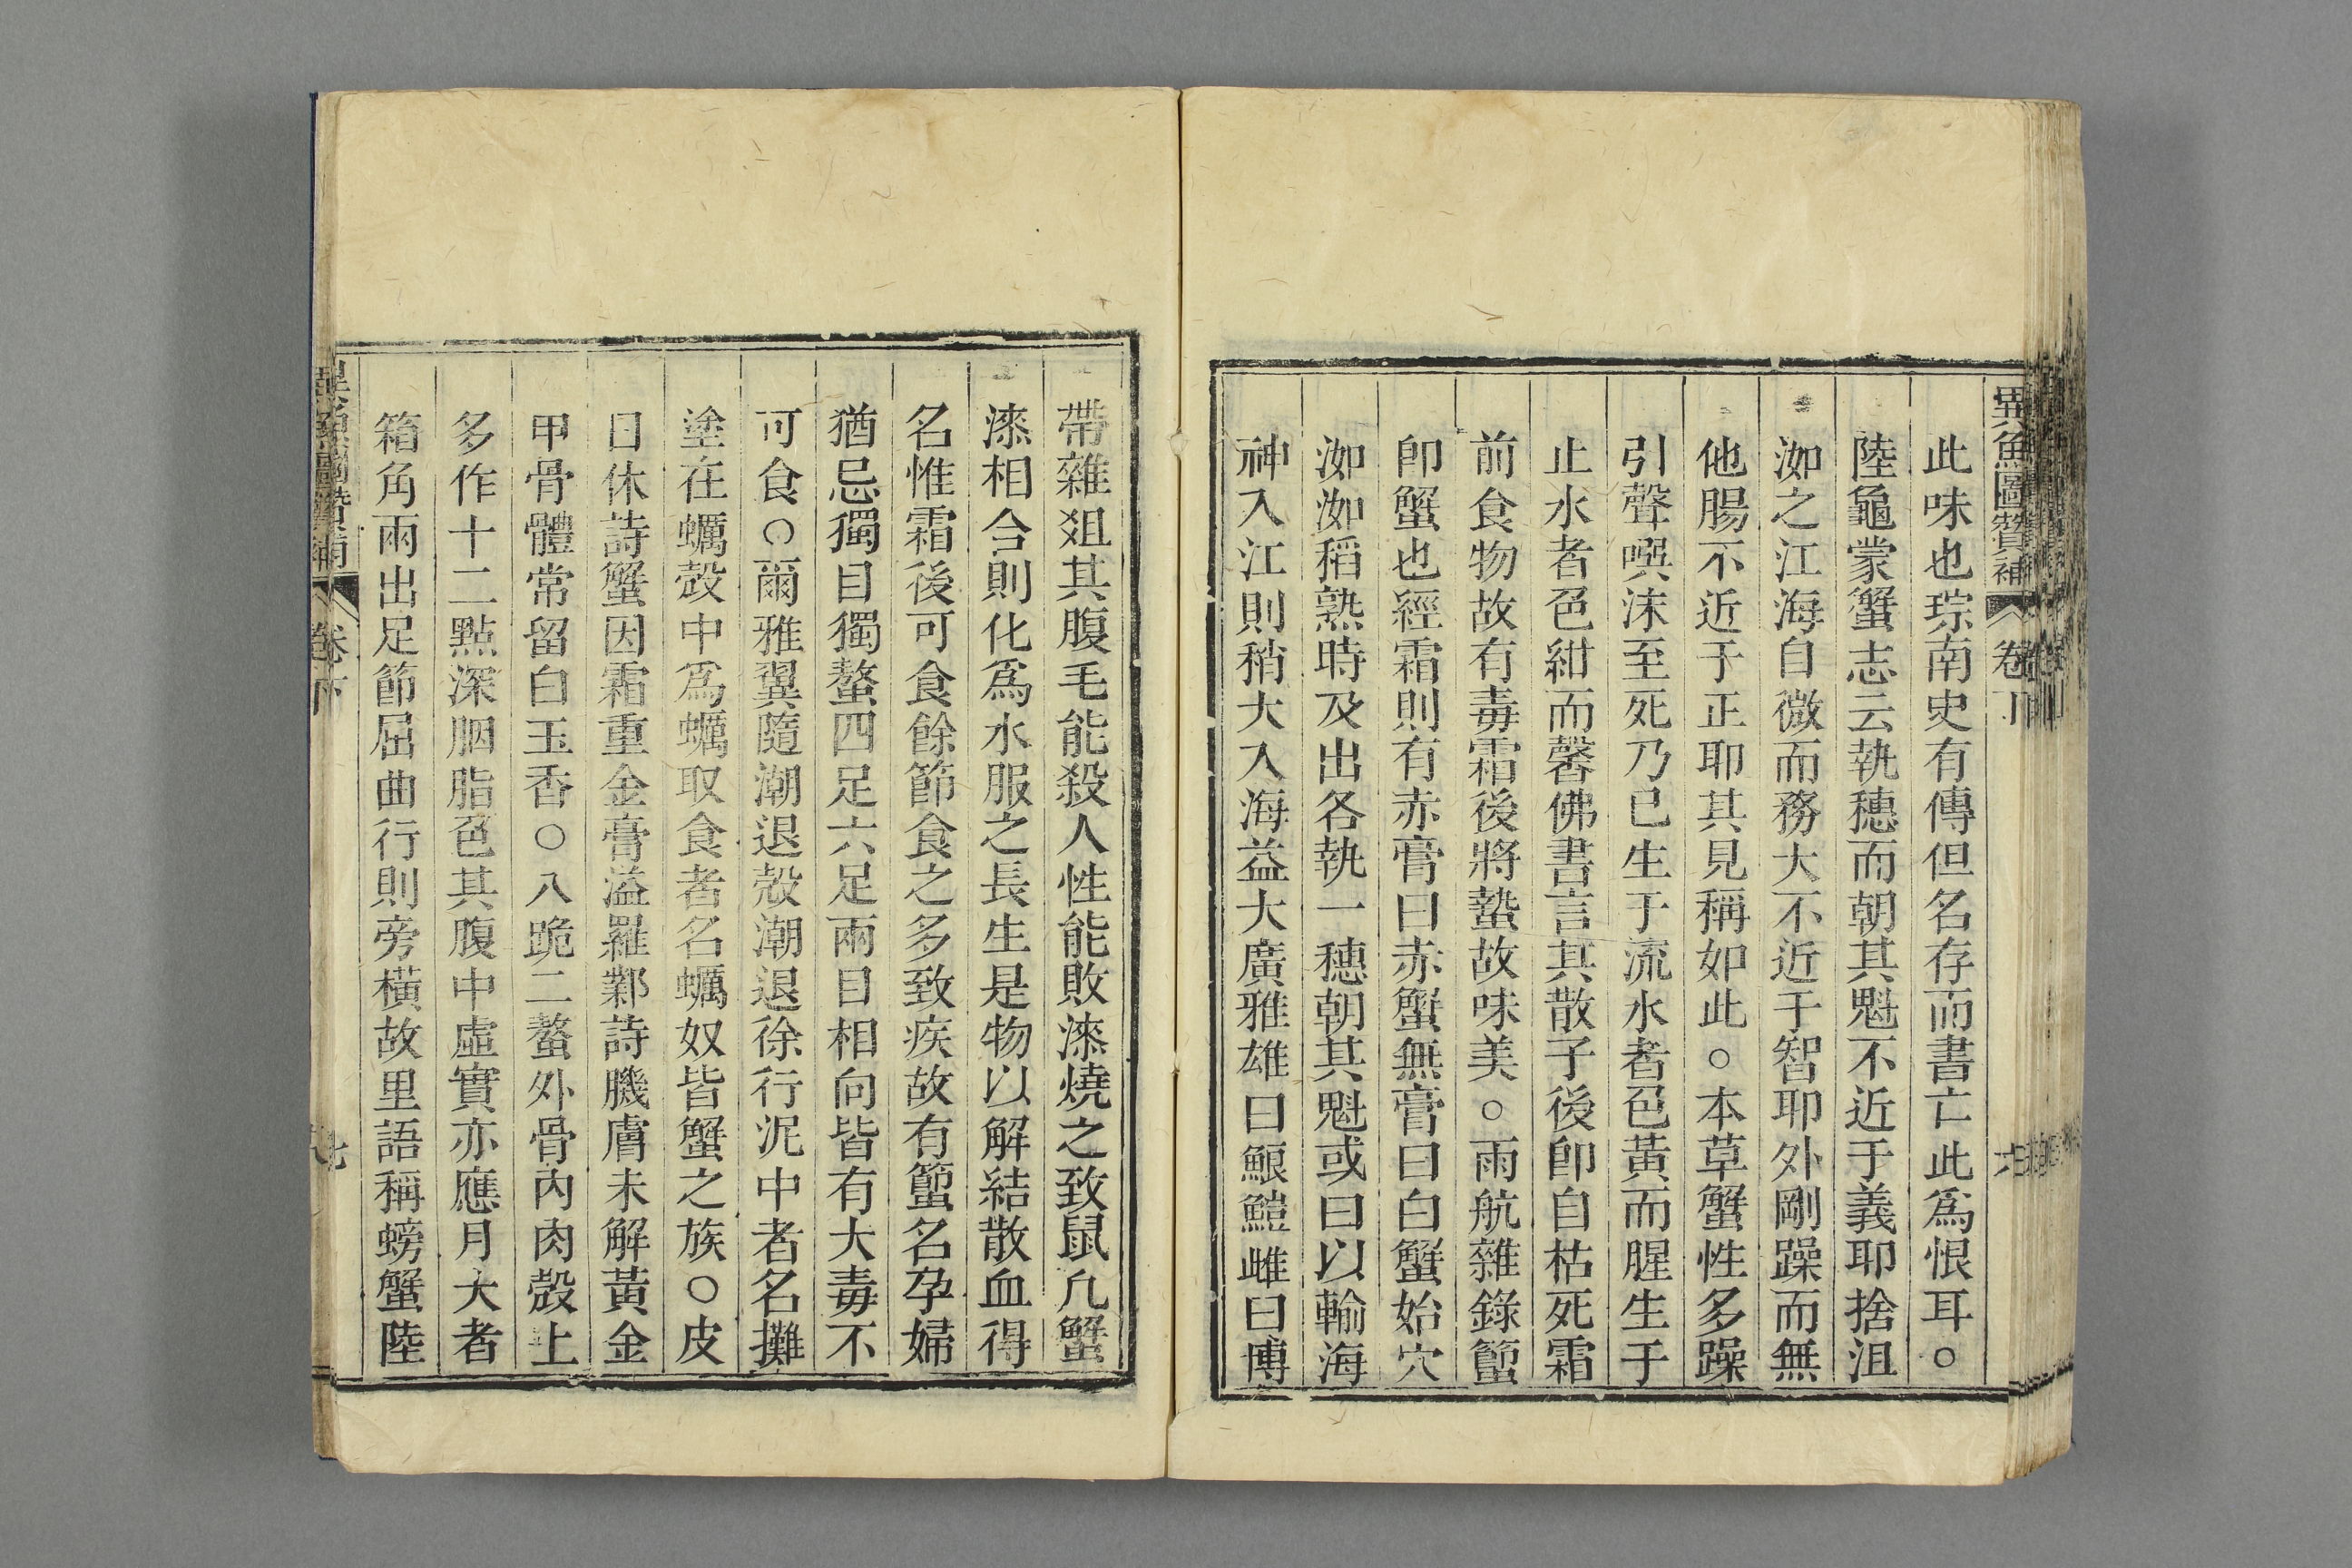 異魚圖贊補 卷下
此味也琮南史有傳但名存而書亡此爲恨耳○
陸龜蒙蟹志云執穗而朝其魁不近于義耶捨沮
洳之江海自微而務大不近于智耶外剛躁而無
他腸不近于正耶其見稱如此○本草蟹性多躁
引聲噀沫至死乃已生于流水者色黃而腥生于
止水者色紺而馨佛書言其散子後卽自枯死霜
前食物故有毒霜後將蟄故味美○雨航雜錄䥫
卽蟹也經霜則有赤膏曰赤蟹無膏曰白蟹始穴
洳洳稻熟時及出各執一穗朝其魁或曰以輸海
神入江則稍大入海益大廣雅雄曰鯸鱧雌曰博
帶雜俎其腹毛能殺人性能敗漆燒之致鼠凢蟹
漆相合則化爲水服之長生是物以解結散血得
名惟霜後可食餘節食之多致疾故有蠞名孕婦
猶忌獨目獨螯四足六足兩目相向皆有大毒不
可食○爾雅翼隨潮退殼潮退徐行泥中者名攤
塗在蠣殼中爲蠣取食者名蠣奴皆蟹之族○皮
日休詩蟹因霜重金膏溢羅鄴詩膱膚未解黃金
甲骨體常留白玉香○八跪二螯外骨內肉殼上
多作十二點深胭脂色其腹中虛實亦應月大者
箱角兩出足節屈曲行則旁橫故里語稱螃蟹陸
異魚圖贊補 卷下 七